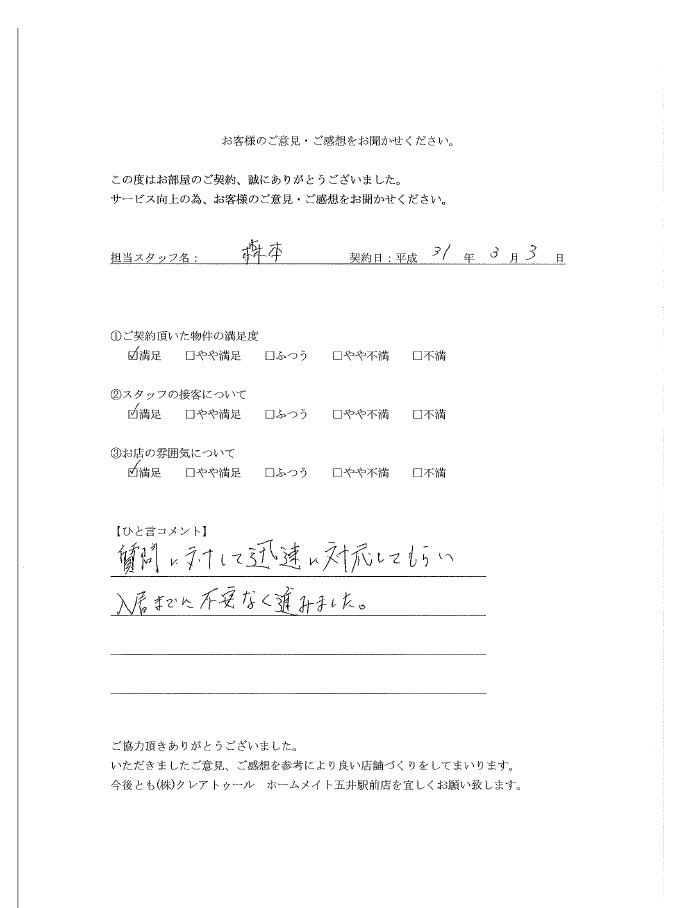 お客様のご意見・ご感想をお聞かせください。
この度はお部屋のご契約、誠にありがとうございました。
サービス向上の為、お客様のご意見・ご感想をお聞かせください。
担当スタッフ名： 森本 契約日：平成 31 年 3 月 3 日
①ご契約頂いた物件の満足度
☑満足 □やや満足 □ふつう □やや不満 □不満
②スタッフの接客について
☑満足 □やや満足 □ふつう □やや不満 □不満
③お店の雰囲気について
☑満足 □やや満足 □ふつう □やや不満 □不満
【ひと言コメント】
質問に対して迅速に対応してもらい
入居までに不安なく進みました。
ご協力頂きありがとうございました。
いただきましたご意見、ご感想を参考により良い店舗づくりをしてまいります。
今後とも(株)クレアトゥール　ホームメイト五井駅前店を宜しくお願い致します。